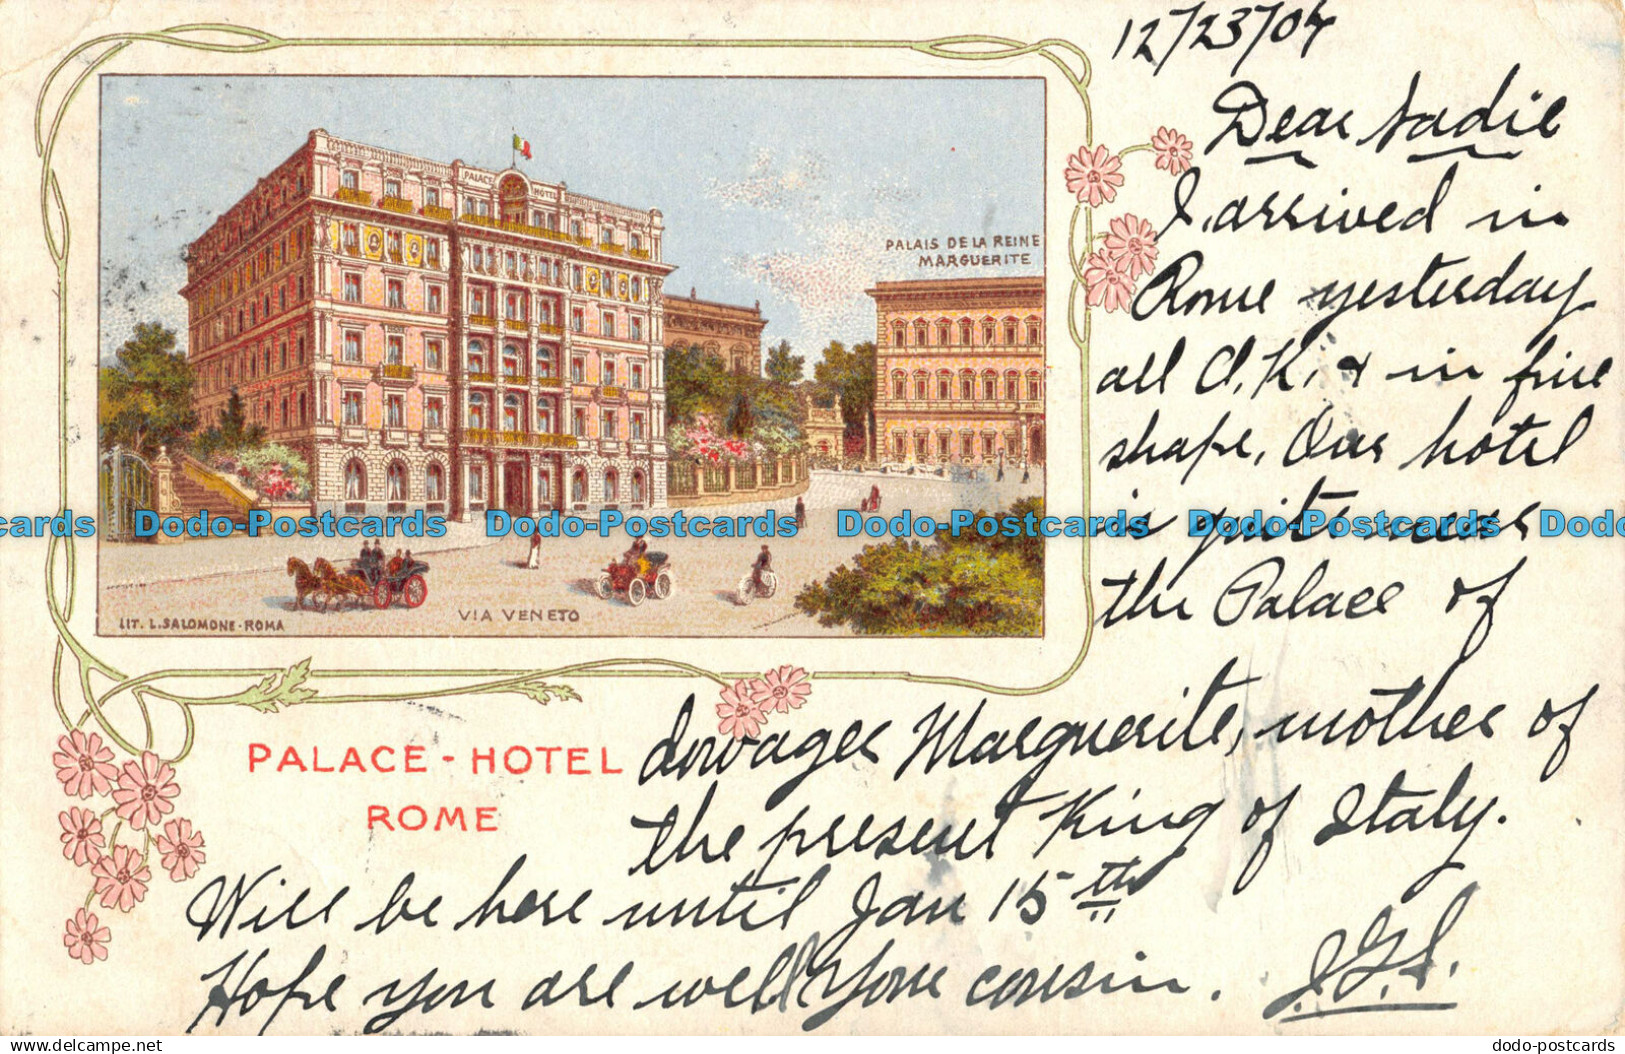 12/23/04
Dear Sadie
I arrived in
Rome yesterday
all O.K. & in fine
shape. Our hotel
is quite near
the Palace of
dowager Marguerite, mother of
the present King of Italy.
Will be here until Jan 15th
Hope you are well Your cousin.
PALACE HOTEL
PALAIS DE LA REINE
MARGUERITE
VIA VENETO
LIT. L. SALOMONE - ROMA
PALACE - HOTEL
ROME
Dodo-Postcards Dodo-Postcards Dodo-Postcards
Dodo-Postcards.com
dodo-postcards